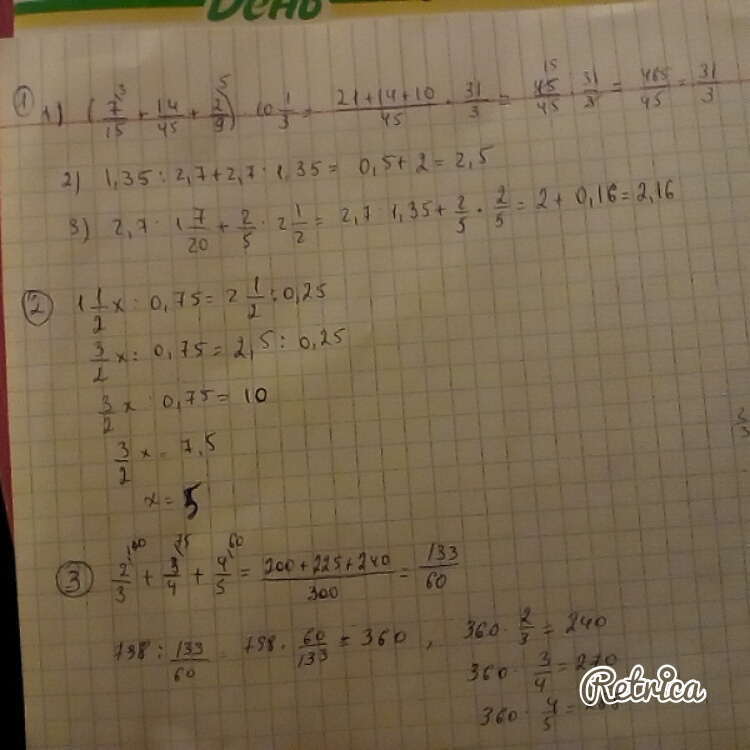 День
① 1) (7/15 + 14/45 + 2/9) 10 1/3 = (21+14+10)/45 · 31/3 = 45/45 · 31/3 = 465/45 = 31/3
2) 1,35 : 2,7 + 2,7 : 1,35 = 0,5 + 2 = 2,5
3) 2,7 · 1 7/20 + 2/5 · 2 1/2 = 2,7 · 1,35 + 2/5 · 2/5 = 2 + 0,16 = 2,16
② 1 1/2 x : 0,75 = 2 1/2 : 0,25
3/2 x : 0,75 = 2,5 : 0,25
3/2 x : 0,75 = 10
3/2 x = 7,5
x = 5
③ 2/3 + 3/4 + 4/5 = (200+225+240)/300 = 133/60
798 : 133/60 = 798 · 60/133 = 360 , 360 · 2/3 = 240
360 · 3/4 = 270
360 · 4/5 =
Retrica